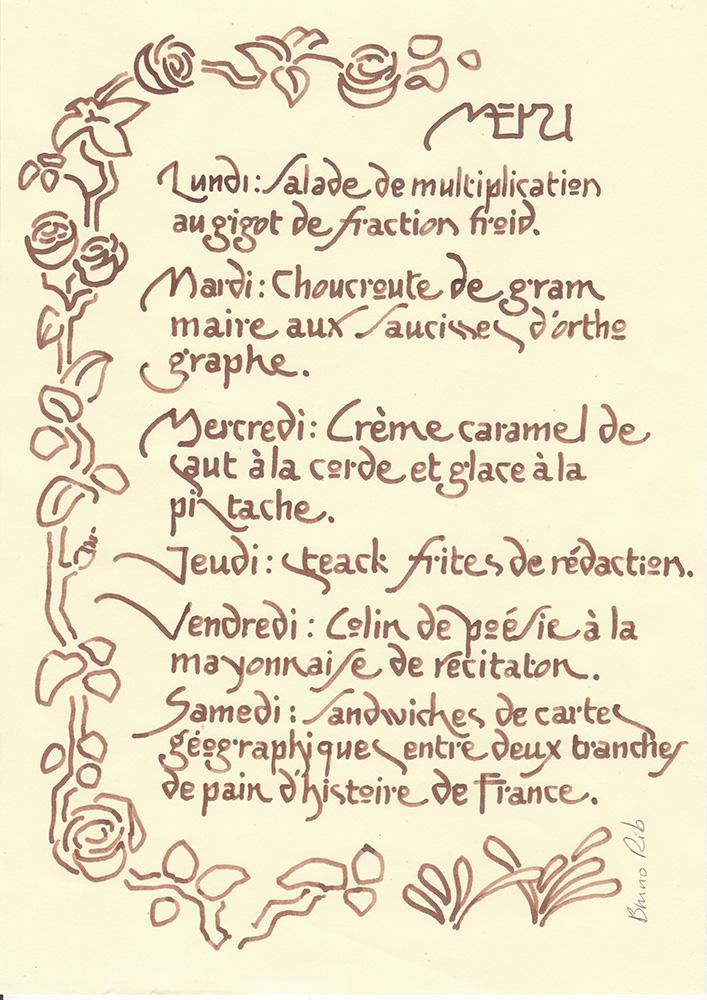 MENU
Lundi : Salade de multiplication
au gigot de fraction froid.
Mardi : Choucroute de gram
maire aux saucisses d'ortho
graphe.
Mercredi : Crème caramel de
saut à la corde et glace à la
pistache.
Jeudi : steack frites de rédaction.
Vendredi : Colin de poésie à la
mayonnaise de récitaton.
Samedi : Sandwiches de cartes
géographiques entre deux tranches
de pain d'histoire de France.
Bruno Rib